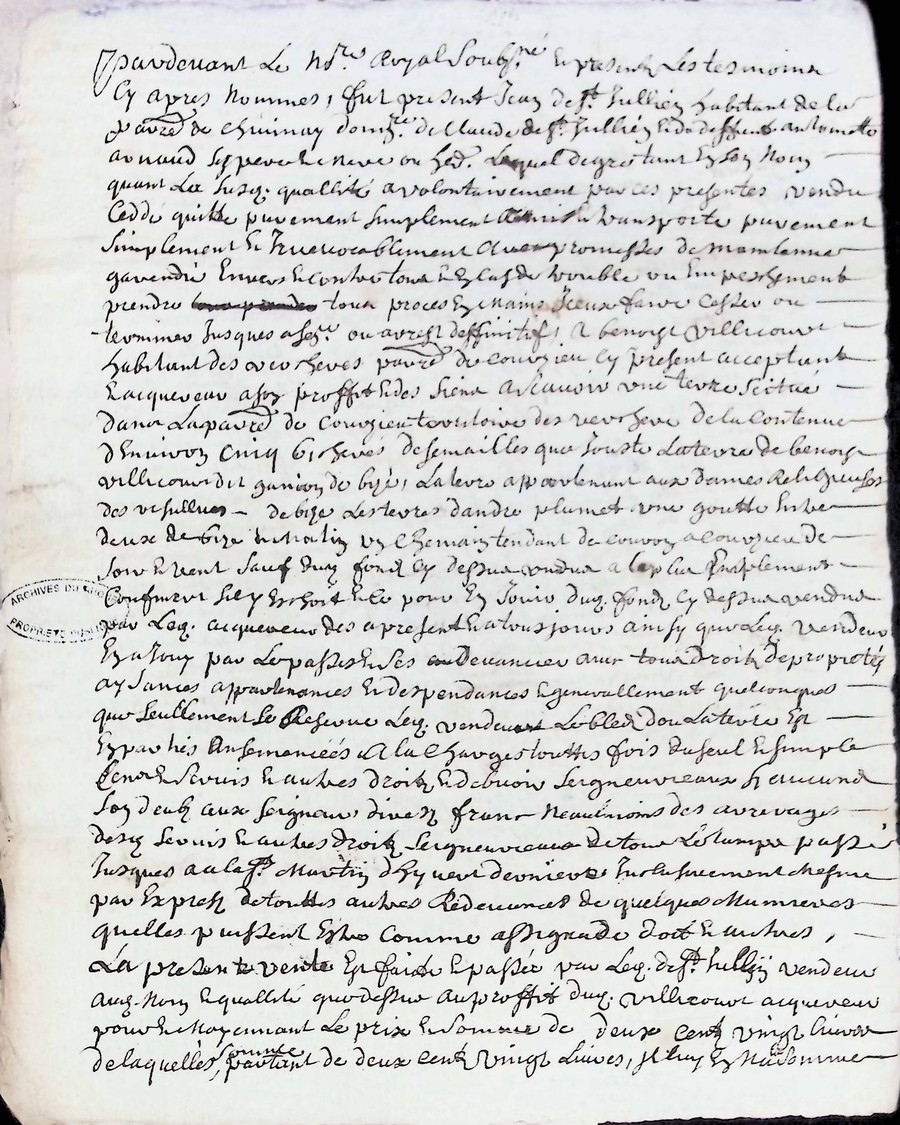 pardevant Le No.re Royal Soubs.né Et presentz Les tesmoins
Cy apres Nommes, fut present Jean de S.t Jullien habitant de la
parr.e de Chivinay donn.re de Claude de S.t Jullien & de deffuncte anthoinette
arnaud ses pere & mere ou hed. Lequel de gre tant En son Nom
quant La Susq. quallité avolontairement par ces presentes vendu
Ceddé quitte purement simplement & transporte purement
Simplement & Irrevocablement Avecq promesses de maintenir
garendir Envers & Contre tous & En Cas de trouble ou Empeschement
prendre tous proces En Mains Iceux faire Cesser ou
terminer Jusques a Se.ce ou arrest deffinitif, A benoist villicourt
habitant des verchere parr.e de Courzieu Cy present acceptant
& acquereur a son proffit & des Siens a Scavoir une terre Scitué
Dans La parr.e de Courzieu territoire des verchere de la Contenue
D'Environ Cinq bicherés de semailles que Jouste La terre de benoist
villicourt dit de bize, La terre appartenant aux Dames Religieuses
des de bize Les terres d'andre plumet une goutte Entre
deux de bize & matin un Chemin tendant de a Courzieu de
Soir & vent Sauf duq. fondz Cy dessus vendus a la plus Emplement
Confiner Sil y Eschoit & ce pour En Jouir duq. fondz Cy dessus vendus
par Leq. acquereur des apresent & a tousjours ainsy que Leq. vendeur
En a Jouy par Le passé & Ses Devanciers avec tous Droitz de proprietés
aysances appartenances & despendances & generallement quelconques
que Seullement Se Reserve Leq. vendeur Le bled dou La terre Est
En parties Ansemencéés A la Charges touttes fois du seul & simple
Cens & Servis & autres Droitz & debvoir Seigneureaux Sy aucuns
Son deubz aux Seigneurs directz franc Neaulmoins des arrerages
desq. Servis & autres droitz Seigneureaux de tous Le temps passé
Jusques a la S.t Martin d'hyvert derniere Inclusivement Mesme
par Exprez de touttes autres Redevances de quelques Manieres
quelles puissent Estre Comme assignade doct & autres,
La presente vente Est faicte & passée par Leq. de S.t Jullien vendeur
auq. Nom & quallité que dessus au proffit duq. villicourt acquereur
pour & Moyennant Le prix & Somme de deux centz vingt Livres
de laquelles somme partant de deux centz vingt Livres, Il luy En
ARCHIVES DU
PROPRIETE